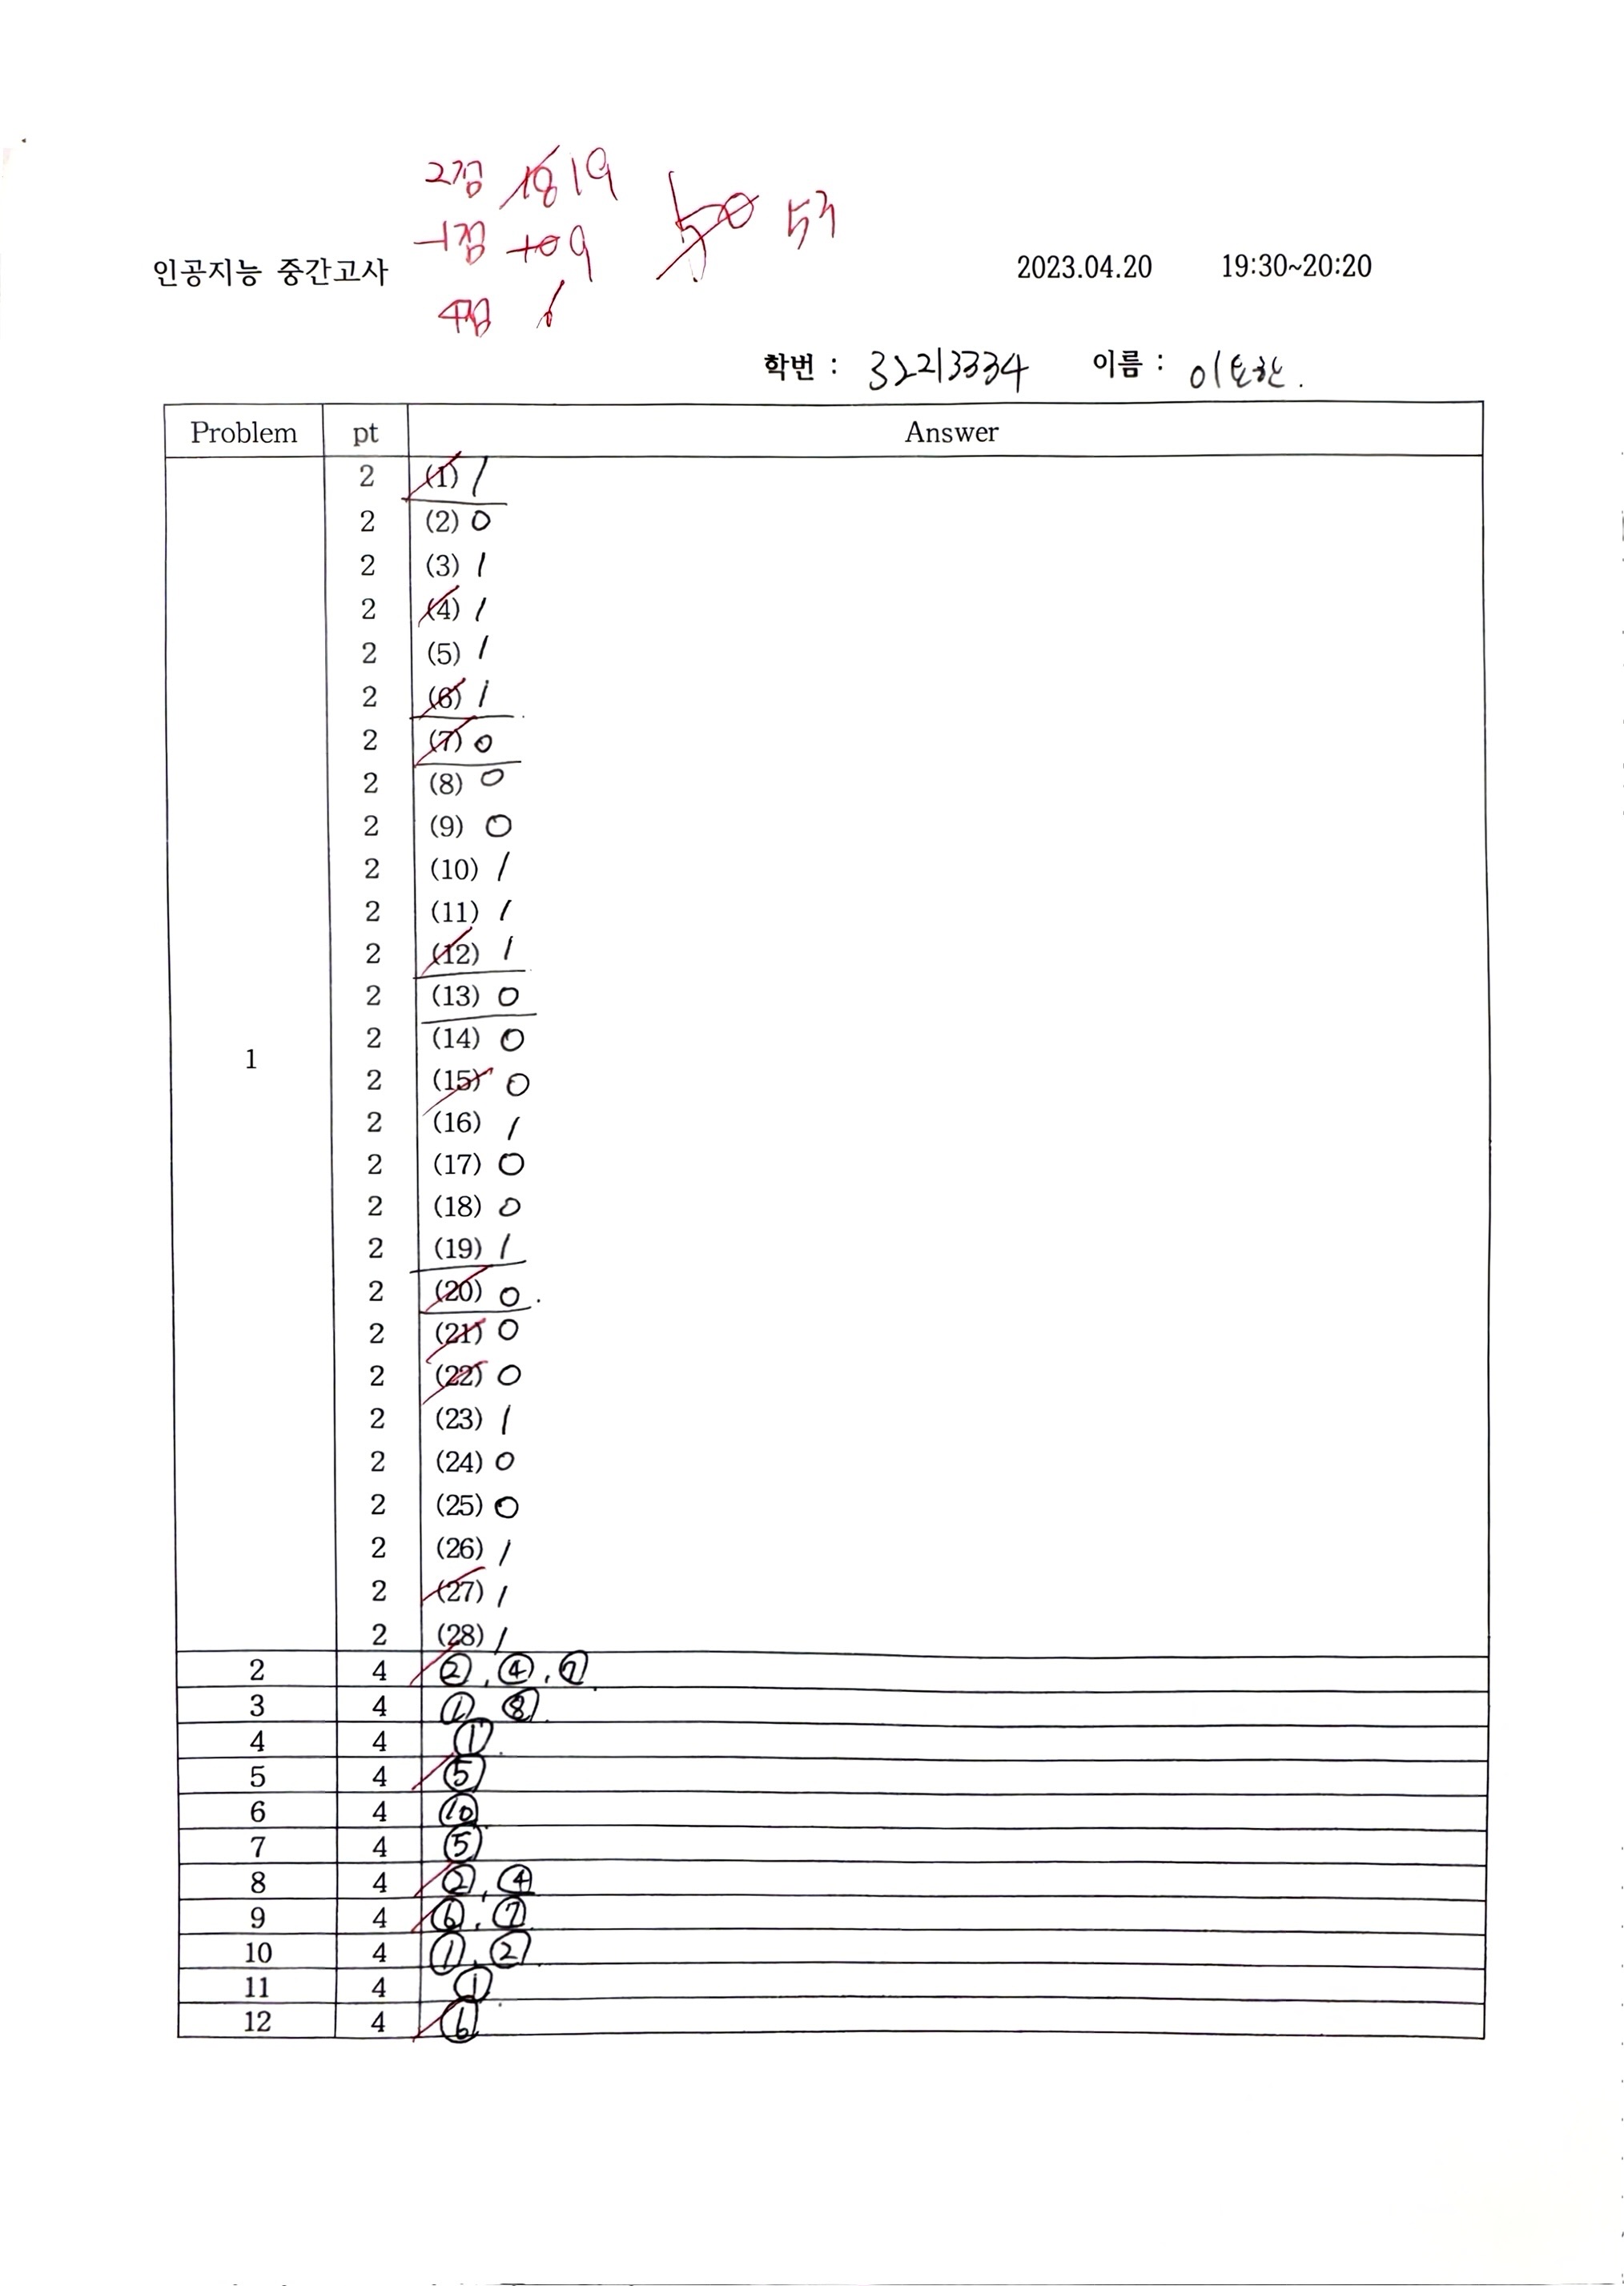 2점 18 19
-1점 10 9 50 53
인공지능 중간고사 2023.04.20 19:30~20:20
4점 6
학번 : 32213334 이름 :
Problem pt Answer
2 (1) 1
2 (2) 0
2 (3) 1
2 (4) 1
2 (5) 1
2 (6) 1
2 (7) 0
2 (8) 0
2 (9) 0
2 (10) 1
2 (11) 1
2 (12) 1
2 (13) 0
2 (14) 0
1
2 (15) 0
2 (16) 1
2 (17) 0
2 (18) 0
2 (19) 1
2 (20) 0.
2 (21) 0
2 (22) 0
2 (23) 1
2 (24) 0
2 (25) 0
2 (26) 1
2 (27) 1
2 (28) 1
2 4 ②, ④, ⑦.
3 4 ①, ⑧.
4 4 ①.
5 4 ⑤
6 4 ⑩
7 4 ⑤
8 4 ②, ④
9 4 ⑥, ⑦
10 4 ①, ②.
11 4 ①.
12 4 ⑥